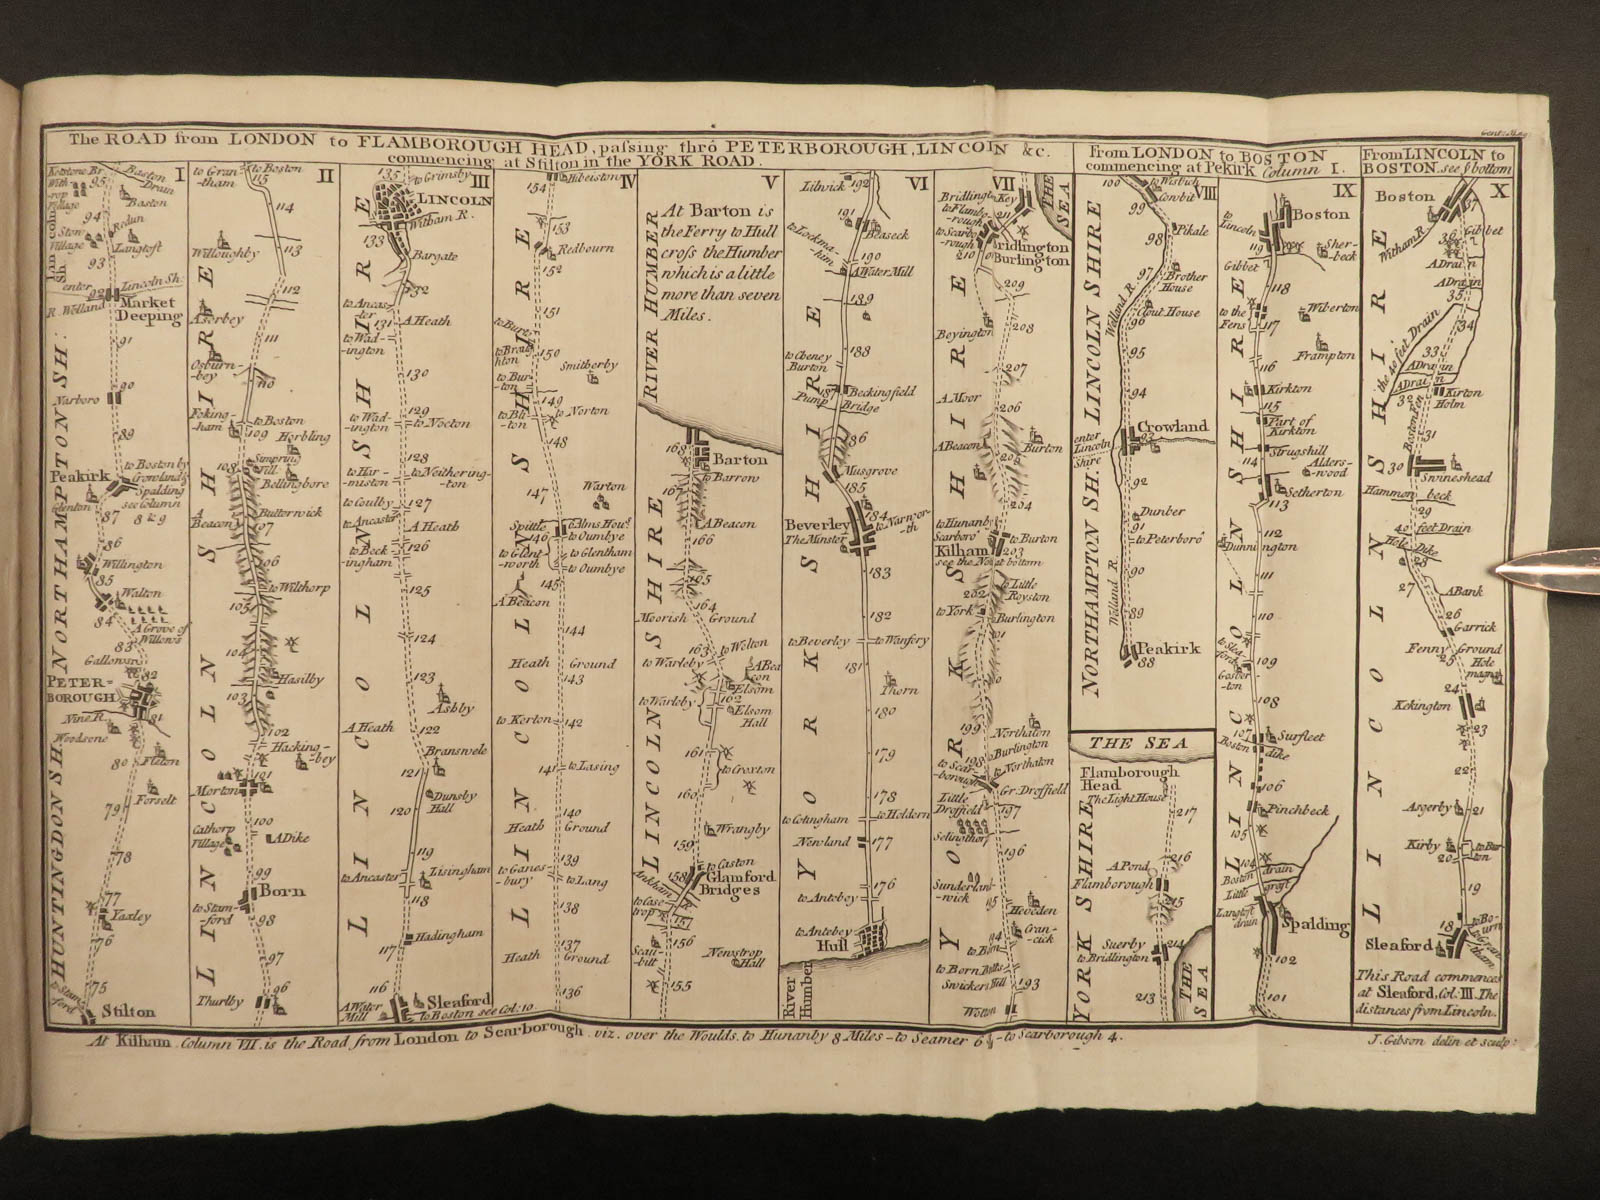 Gent. Mag.
The ROAD from LONDON to FLAMBOROUGH HEAD, passing thrô PETERBOROUGH, LINCOLN &c.
commencing at Stilton in the YORK ROAD.
From LONDON to BOSTON
commencing at PeKirk Column I.
From LINCOLN to
BOSTON see ye bottom
I
Kotstone Br.
95
Baston
Drain
Baston
94
Langtoft
93
enter
92
Lincoln Sh:
R. Welland
Market
Deeping
91
90
Narboro
89
Peakirk
to Boston by
Crowland &
Spalding
see Column
8 & 9
Glenton
87
86
Willington
85
Walton
84
A Grove of
Willows
83
Gallows
82
PETER-
BOROUGH
81
Nine R.
Woodsone
80
Fleton
Forselt
79
78
77
Yaxley
76
75
to Stam-
ford
Stilton
NORTHAMPTON SH:
HUNTINGDON SH.
II
to Gran-
tham
to Boston
115
114
Willoughby
113
112
Aserby
111
Osburn-
bey
110
Foking-
ham
to Boston
109
Horbling
108
Sempring
Bellingbore
A
Beacon
Butterwick
107
106
to Wilthorp
105
104
Hasilby
103
102
Hacking-
bey
101
Morton
100
Cathorp
Village
A Dike
99
Born
to Stam-
ford
98
97
96
Thurlby
LINCOLN SHIRE
III
135
to Grimsby
LINCOLN
Witham R.
133
Bargate
132
to Ancas-
ter
131
A Heath
to Wad-
ington
130
129
to Wad-
ington
to Nocton
128
to Har-
miston
to Neithering-
ton
to Coulby
127
to Ancaster
A Heath
126
to Beck
ingham
125
124
123
Ashby
A Heath
122
Branswele
121
Dunsby
Hall
120
119
to Ancaster
Lisingham
118
Hadingham
117
116
A Water
Mill
Sleaford
to Boston see Col: 10
LINCOLN SHIRE
IV
154
Hibelston
153
Redbourn
152
151
150
Smitherby
to Bur-
ton
149
to Norton
148
147
Warton
Spittle
to Alms Hous.
146
to Oumbye
to Glent-
worth
to Glentham
to Oumbye
145
A Beacon
144
Heath Ground
143
to Kerton
142
141
to Lasing
140
Heath Ground
139
to Ganes-
bury
to Lang
138
137
Heath Ground
136
LINCOLN SHIRE
V
At Barton is
the Ferry to Hull
cross the Humber
which is a little
more than seven
Miles.
RIVER HUMBER
168
Barton
to Barrow
167
A Beacon
166
165
164
Moorish Ground
163
to Welton
to Warleby
A Bea
con
Elsom
162
to Warleby
Elsom
Hall
161
to Croxton
160
Wrangby
159
to Caston
158
Glamford
Bridges
Ankham
to Cas-
trop
157
156
Scau-
bilt
Newstrop
Hall
155
LINCOLN SHIRE
VI
Litwick
192
191
Beaseck
to Lockma-
ham
190
A Water Mill
189
188
to Cheney
Burton
187
Beckingfield
Bridge
Pump
186
Musgrove
185
Beverley
The Minster
184
to Narwor-
th
183
182
to Beverley
to Wanfery
181
Thorn
180
179
178
to Cotingham
to Heldern
Newland
177
176
to Antobey
to Antebey
Hull
River
Humber
YORK SHIRE
VII
Bridlington
Key
211
to Flambo-
rough
to Scarbo-
rough
210
Bridlington
Burlington
THE
SEA
209
208
Boyington
207
A Moor
206
A Beacon
Burton
205
204
to Hunanby
Scarboro'
to Burton
Kilham
203
see the Note at bottom
to Little
Royston
202
to York
Burlington
199
Northalon
Burlington
198
to Northaton
to Scar-
borough
Gr. Droffield
Little
Droffield
197
Selingthorp
196
Sunderland-
wick
195
Hoveden
194
Cran-
cick
to Born
to Born Butts
Swickers Hill
193
Wotton
YORK SHIRE
VIII
100
to Wisbich
Cowbit
99
Pikale
98
97
Brother
House
Clout House
Welland R.
96
95
94
Crowland
93
enter
Lincoln
Shire
92
Dunber
91
to Peterboro'
90
89
Welland R.
Peakirk
88
NORTHAMPTON SH: LINCOLN SHIRE
THE SEA
Flamborough
Head
The Light House
217
216
A Pond
Flamborough
215
Suerby
to Bridlington
214
213
THE
SEA
YORK SHIRE
IX
to
Lincoln
Boston
119
Sher-
beck
Gibbet
118
to the
Fens
117
Wiberton
Frampton
116
Kirkton
115
Part of
Kirkton
Strugshill
114
Alders-
wood
Setherton
113
112
Dunnington
111
110
109
Gosber-
ton
108
107
Surfleet
Boston
dike
106
Pinchbeck
105
104
Boston
drain
Little
croft
Langtoft
drain
Spalding
102
101
LINCOLN SHIRE
X
Boston
37
Witham R.
36
Gibbet
A Drain
A Drain
35
34
the 40 feet Drain
33
A Drain
A Drain
Kirton
Holm
Boston Fen
31
30
Swineshead
Hammon beck
29
40 feet Drain
Hole Dike
28
27
A Bank
26
Garrick
Fenny Ground
25
Hole
magna
24
Kekington
23
22
Asgerby
21
Kirby
20
to Bur-
ton
19
18
to Bo-
urn
Sleaford
to Gran-
tham
This Road commences
at Sleaford, Col. III. The
distances from Lincoln.
LINCOLN SHIRE
At Kilham Column VII. is the Road from London to Scarborough viz. over the Woulds to Hunanby 8 Miles - to Seamer 6½ - to Scarborough 4.
J. Gibson delin et sculp: